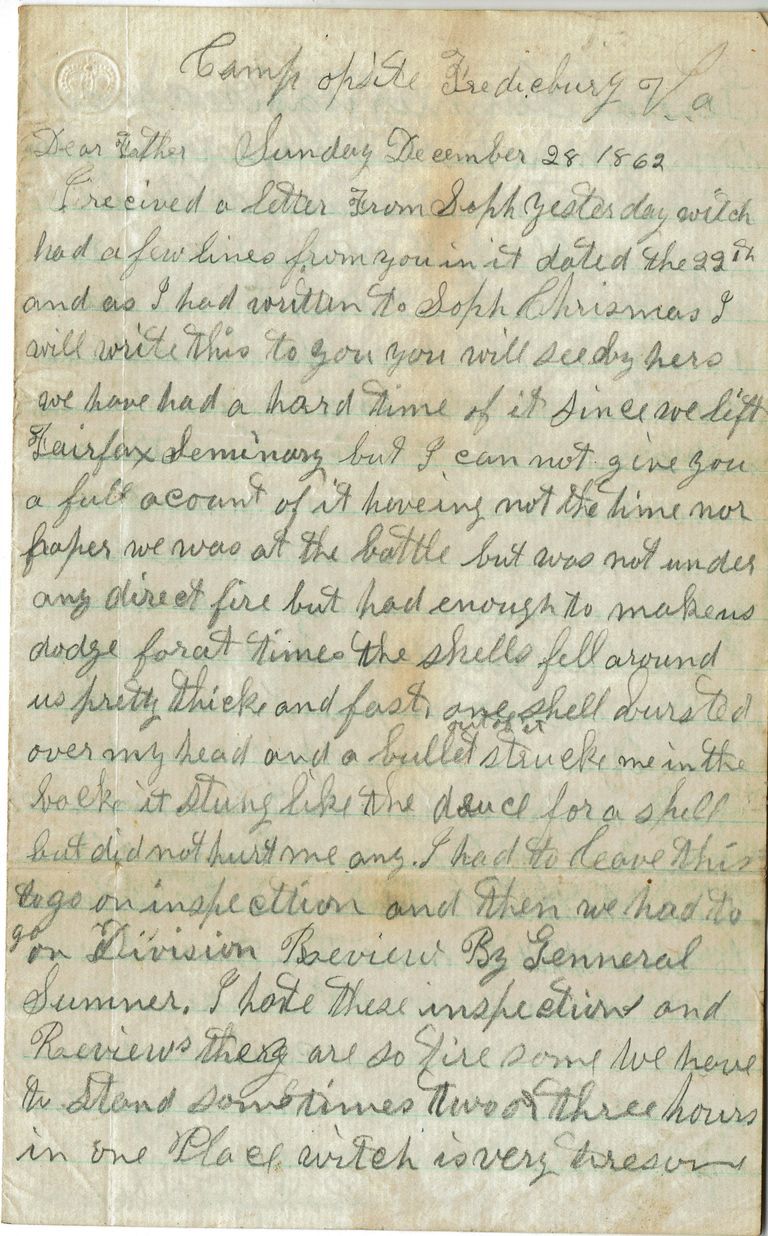 Camp opsite Fredicburg Va
Dear Father Sunday December 28 1862
I recived a letter From Soph yesterday witch
had a few lines from you in it dated the 22th
and as I had written to Soph Chrismas I
will write this to you you will see by hers
we have had a hard time of it since we lift
Fairfax Seminary but I can not give you
a full acount of it haveing not the time nor
paper we was at the battle but was not under
any direct fire but had enough to make us
dodge for at times the shells fell around
us pretty thick and fast, one shell bursted
out of it
over my head and a bullet strucke me in the
back it stung like the deuce for a spell
but did not hurt me any. I had to leave this
to go on inspecttion and then we had to
go on Division Reeview By Genneral
Sumner. I hate these inspections and
Reeviews they are so tire some we have
to stand sometimes two or three hours
in one Place witch is very tiresom